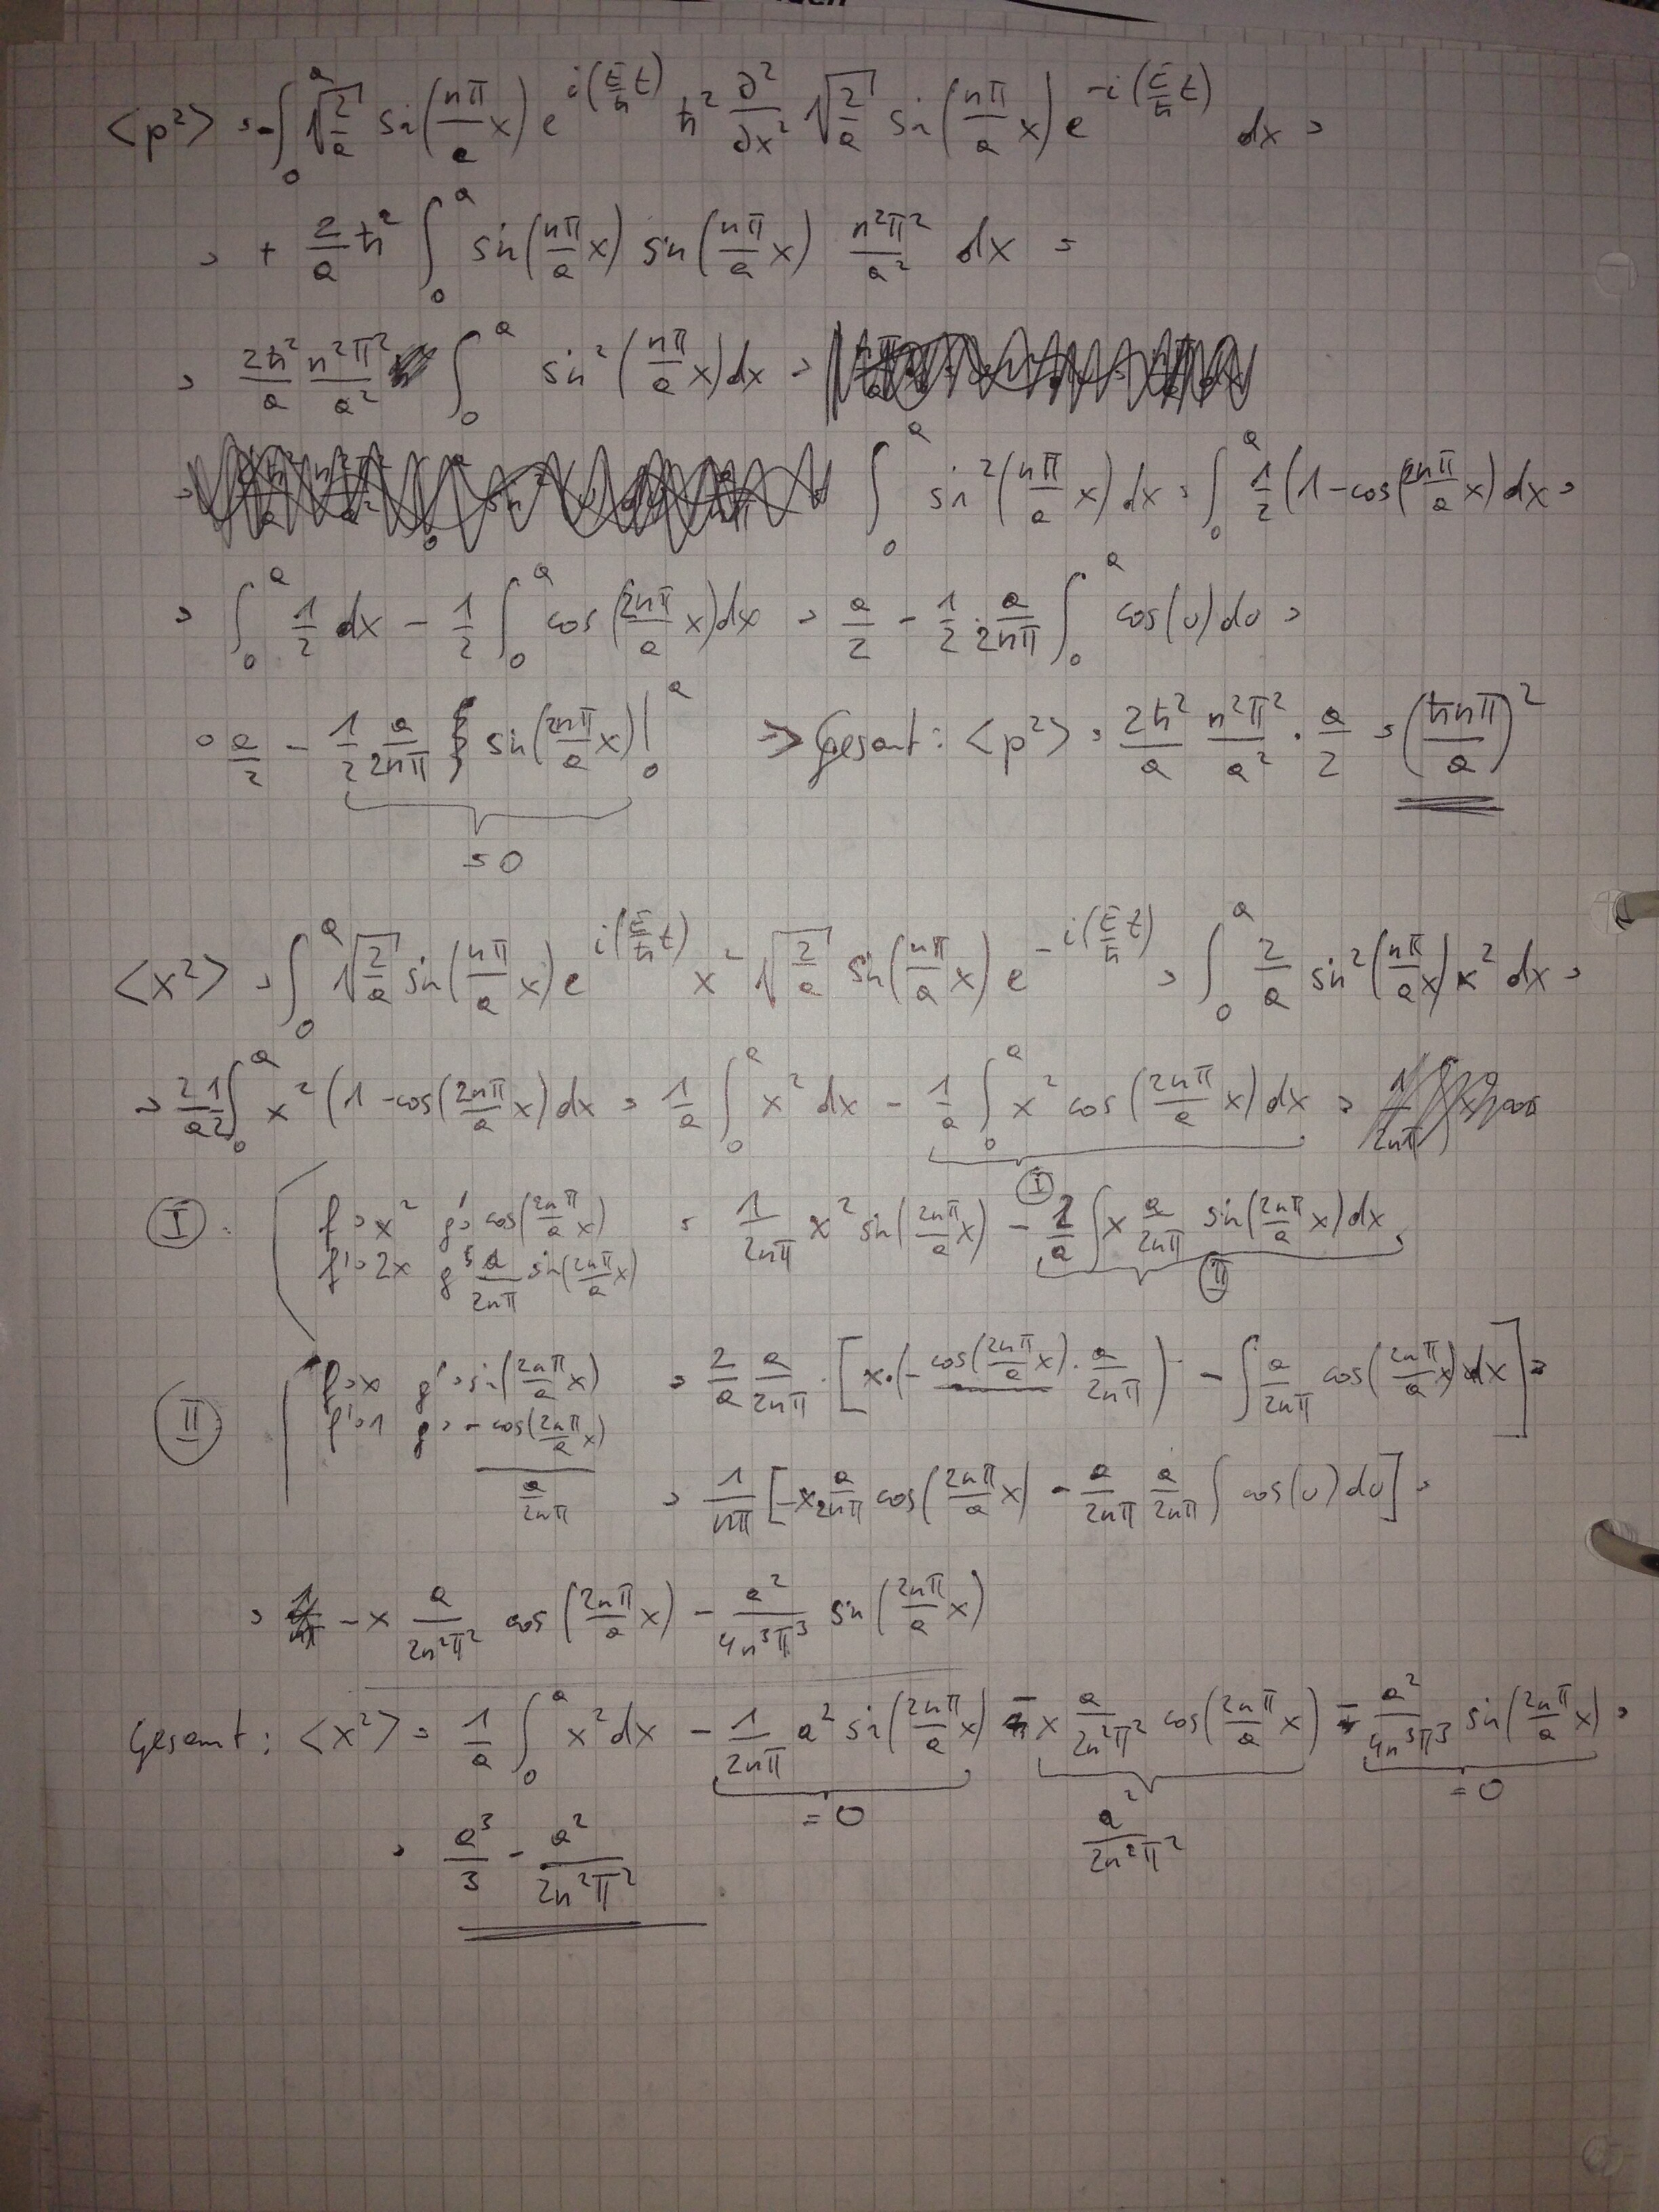 <p²> = -∫₀ᵃ √(2/a) sin(nπ/a x) e^{i(E/ħ t)} ħ² ∂²/∂x² √(2/a) sin(nπ/a x) e^{-i(E/ħ t)} dx =
= + 2/a ħ² ∫₀ᵃ sin(nπ/a x) sin(nπ/a x) n²π²/a² dx =
= 2ħ²/a n²π²/a² ∫₀ᵃ sin²(nπ/a x) dx =
∫₀ᵃ sin²(nπ/a x) dx = ∫₀ᵃ 1/2 (1 - cos(2nπ/a x) dx =
= ∫₀ᵃ 1/2 dx - 1/2 ∫₀ᵃ cos(2nπ/a x) dx = a/2 - 1/2 · a/2nπ ∫₀ᵃ cos(u) du =
= a/2 - 1/2 a/2nπ sin(2nπ/a x) |₀ᵃ => Gesamt: <p²> = 2ħ²/a n²π²/a² · a/2 = (ħnπ/a)²
= 0
<x²> = ∫₀ᵃ √(2/a) sin(nπ/a x) e^{i(E/ħ t)} x² √(2/a) sin(nπ/a x) e^{-i(E/ħ t)} = ∫₀ᵃ 2/a sin²(nπ/a x) x² dx =
= 2/a 1/2 ∫₀ᵃ x² (1 - cos(2nπ/a x) dx = 1/a ∫₀ᵃ x² dx - 1/a ∫₀ᵃ x² cos(2nπ/a x) dx =
I
I: f=x² g'=cos(2nπ/a x) = 1/2nπ x² sin(2nπ/a x) - 2/a ∫ x a/2nπ sin(2nπ/a x) dx
f'=2x g= a/2nπ sin(2nπ/a x) II
II f=x g'=sin(2nπ/a x) = 2/a a/2nπ · [x·(-cos(2nπ/a x) · a/2nπ) - ∫ a/2nπ cos(2nπ/a x) dx] =
f'=1 g= -cos(2nπ/a x)
a/2nπ = 1/nπ [-x a/2nπ cos(2nπ/a x) - a/2nπ a/2nπ ∫ cos(u) du] =
= -x a/2n²π² cos(2nπ/a x) - a²/4n³π³ sin(2nπ/a x)
Gesamt: <x²> = 1/a ∫₀ᵃ x² dx - 1/2nπ a² sin(2nπ/a x) - x a/2n²π² cos(2nπ/a x) - a²/4n³π³ sin(2nπ/a x) =
= 0 a²/2n²π² = 0
= a³/3 - a²/2n²π²